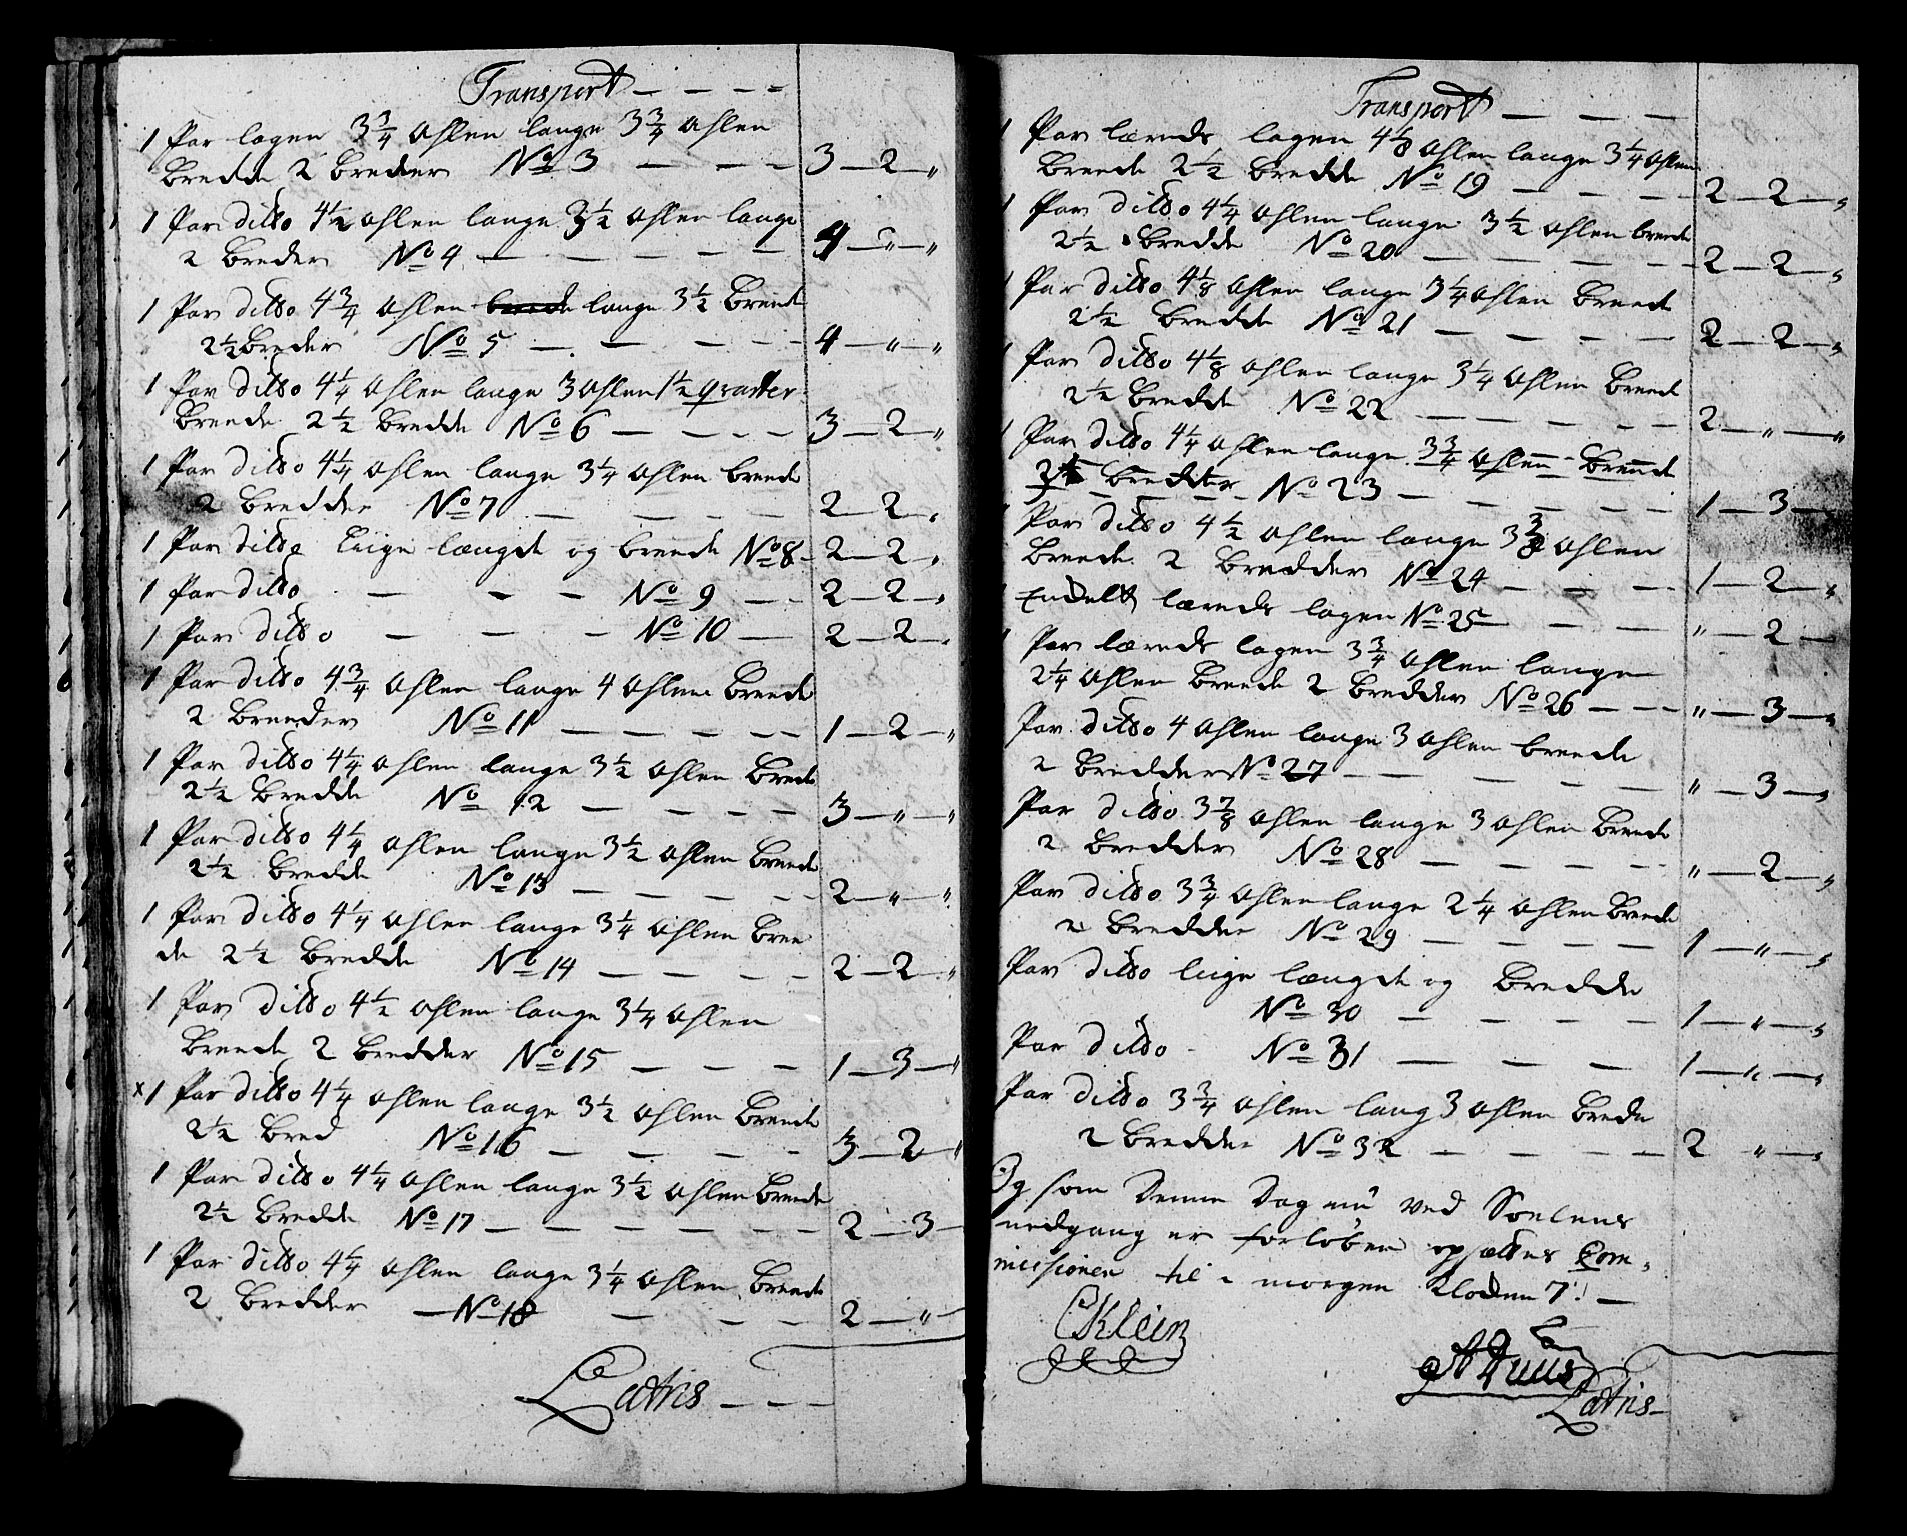 Transport
1 Par lagen 3 3/4 Ahlen lange 3 3/4 Ahlen
Bredde 2 Breder No 3 — — — 3 — 2 — "
1 Par ditto 4 1/2 Ahlen lange 3 1/2 Ahlen lange
2 Breder No 4 — — — — — 4 — " — "
1 Par ditto 4 3/4 Ahlen brede lange 3 1/2 Breede
2 1/2 Breder No 5 — — — — 4 — " — "
1 Par ditto 4 1/4 Ahlen lange 3 Ahlen 1 1/2 qvarter
Breede 2 1/2 Bredde No 6 — — — — 3 — 2 — "
1 Par ditto 4 1/4 Ahlen lange 3 1/4 Ahlen breede
2 Bredder No 7 — — — — 2 — 2 — "
1 Par ditto liige længde og breede No 8 — 2 — 2 — "
1 Par ditto — — — No 9 — — 2 — 2 — "
1 Par ditto — — — No 10 — 2 — 2 — "
1 Par ditto 4 3/4 Ahlen lange 4 Ahlen Breede
2 Breeder No 11 — — — — — 1 — 2 — "
1 Par ditto 4 1/4 Ahlen lange 3 1/2 Ahlen Brede
2 1/2 Bredde No 12 — — — — 3 — " — "
1 Par ditto 4 1/4 Ahlen lange 3 1/2 Ahlen Breede
2 1/2 Bredde No 13 — — — — 2 — " — "
1 Par ditto 4 1/4 Ahlen lange 3 1/4 Ahlen Bree
de 2 1/2 Bredde No 14 — — — — 2 — 2 — "
1 Par ditto 4 1/2 Ahlen lange 3 1/4 Ahlen
Breede 2 Bredder No 15 — — — 1 — 3 — "
x 1 Par ditto 4 1/4 Ahlen lange 3 1/2 Ahlen Breede
2 1/2 Bred No 16 — — — — 3 — 2 — "
1 Par ditto 4 1/4 Ahlen lange 3 1/2 Ahlen Breede
2 1/2 Bredde No 17 — — — — — 2 — 3 —
1 Par ditto 4 1/4 Ahlen lange 3 1/4 Ahlen Breede
2 Bredder — No 18 — — — 2 — " —
Latris — — —
Transport — — —
1 Par lærreds lagen 4 1/8 Ahlen lange 3 1/4 Ahlen
Breede 2 1/2 Bredde No 19 — — — 2 — 2 — "
1 Par ditto 4 1/4 Ahlen lange 3 1/2 Ahlen breede
2 1/2 Bredde No 20 — — — — 2 — 2 — "
1 Par ditto 4 1/8 Ahlen lange 3 1/4 Ahlen Breede
2 1/2 Bredde No 21 — — — — 2 — 2 — "
1 Par ditto 4 1/8 Ahlen lange 3 1/4 Ahlen Breede
2 1/2 Bredde No 22 — — — — 2 — " — "
1 Par ditto 4 1/4 Ahlen lange 3 3/4 Ahlen Breede
Bredder No 23 — — — — 1 — 3 —
Par ditto 4 1/2 Ahlen lange 3 Ahlen
Breede 2 Bredder No 24 — — — 1 — 2 — "
Enckelt lærreds lagen No 25 — — — " — 2 —
Par lærreds lagen 3 3/4 Ahlen lange
2 1/4 Ahlen Breede 2 Bredder No 26 — — — " — 3 — "
Par ditto 4 Ahlen lange 3 Ahlen breede
2 Bredder No 27 — — — — " — 3 — "
Par ditto 3 7/8 Ahlen lange 3 Ahlen Breede
2 Bredder No 28 — — — — " — 2 — "
Par ditto 3 3/4 Ahlen lange 2 1/4 Ahlen Breede
2 Bredder No 29 — — — — 1 — " — "
Par ditto liige længde og Bredde
No 30 — — — — 1 — " — "
Par ditto — No 31 — — — 1 — " — "
Par ditto 3 3/4 Ahlen lang 3 Ahlen Brede
2 Bredder No 32 — — — — 2 " — "
Og som denne Dag nu ved Soelens
nedgang er forløben opsættes Com-
missionen til i morgen Klocken 7! —
CKlein
Duus
Latris —